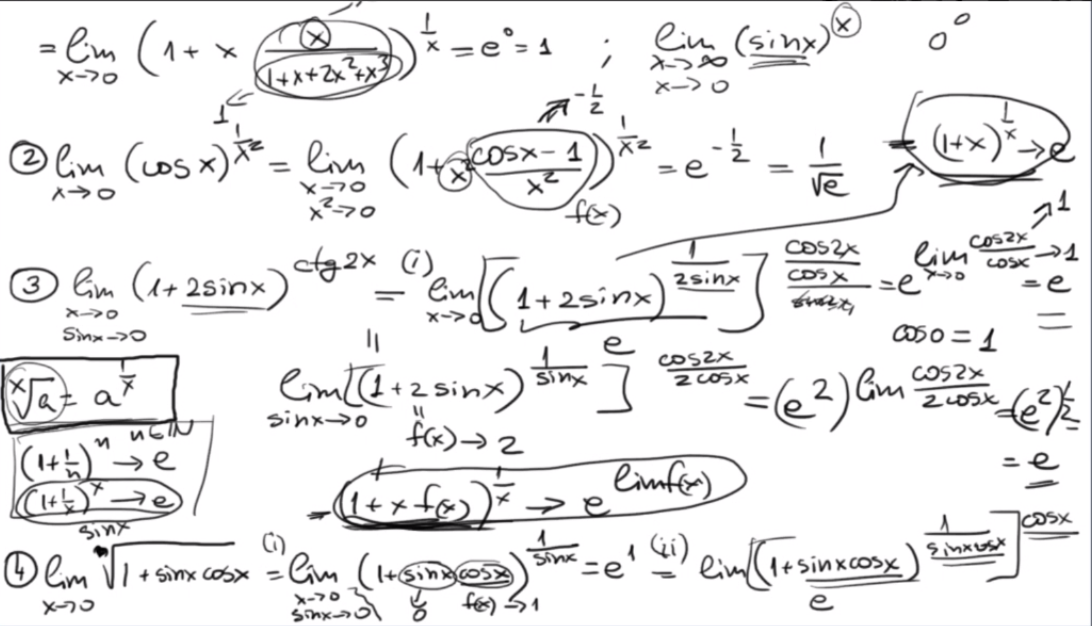 = lim x→0 (1 + x x/(1+x+2x²+x³))^(1/x) = e⁰ = 1 ; lim x→∞ x→0 (sinx)^x 0⁰
1
② lim x→0 (cosx)^(1/x²) = lim x→0 x²→0 (1 + x² (cosx − 1)/x²)^(1/x²) = e^(−1/2) = 1/√e = (1+x)^(1/x) → e
−1/2
f(x)
③ lim x→0 sinx→0 (1 + 2sinx)^(ctg2x) =(i) lim x→0 [(1 + 2sinx)^(1/(2sinx))]^(cos2x/cosx) = e^(lim x→0 cos2x/cosx → 1) = e
1
e
cos0 = 1
= lim sinx→0 [(1 + 2sinx)^(1/sinx)]^(cos2x/(2cosx)) = (e²)^(lim cos2x/(2cosx)) = (e²)^(1/2) = e
f(x) → 2
ˣ√a = a^(1/x)
(1 + 1/n)^n n∈ℕ → e
(1 + 1/x)^x → e
(1 + x f(x))^(1/x) → e^(lim f(x))
④ lim x→0 ^(sinx)√(1 + sinx cosx) =(i) lim x→0 sinx→0 (1 + sinx cosx)^(1/sinx) = e¹ =(ii) lim [(1 + sinx cosx)^(1/(sinx cosx))]^(cosx)
0 f(x) → 1
e